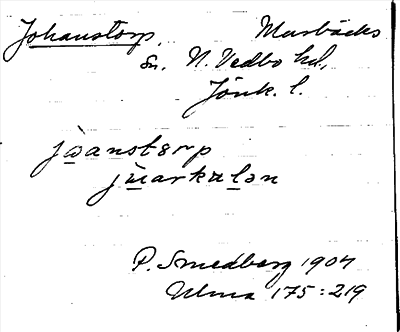 Johanstorp. Marbäcks
sn. N. Vedbo hd,
Jönk. l.
jwanstorp
juarkulen
P. Smedberg 1907
Ulma 175:219